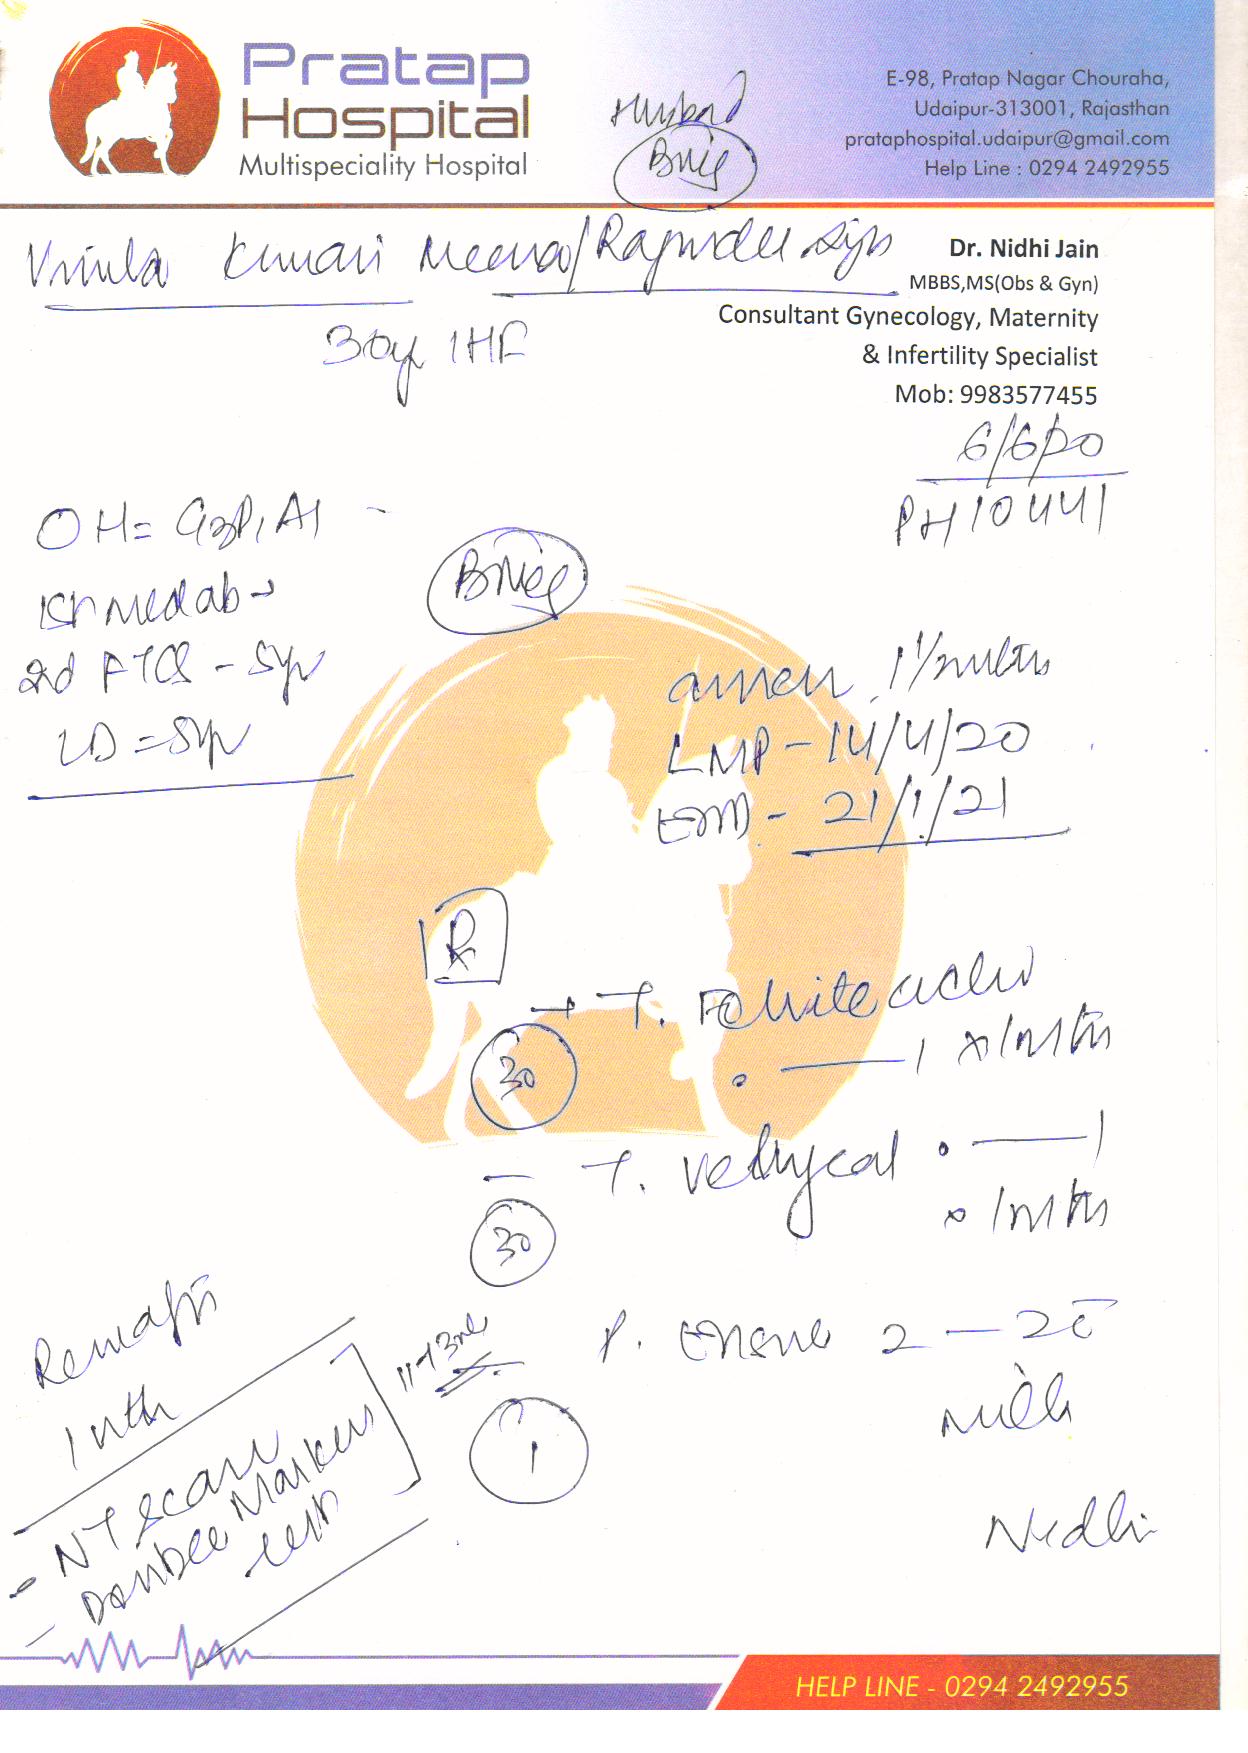 Pratap
Hospital
Multispeciality Hospital
Husband
B Neg
E-98, Pratap Nagar Chouraha,
Udaipur-313001, Rajasthan
prataphospital.udaipur@gmail.com
Help Line : 0294 2492955
Kumari Meena/
Dr. Nidhi Jain
MBBS,MS(Obs & Gyn)
Consultant Gynecology, Maternity
& Infertility Specialist
Mob: 9983577455
30y
6/6/20
PH10441
OH = G3P1A1
B Neg
Ist Med ab →
2nd FTCS - 5yr
LD = 5yr
amen 1 1/2 mths
LMP - 14/4/20
EDD - 21/1/21
Rx
→ T. Folvite active
30
1 x 1 mth
- T. 1
x 1 mth
30
P. 2 - 2 c̄
milk
1
Nidhi
1 mth
- NT scan
Double Marker
test
11-13
HELP LINE - 0294 2492955